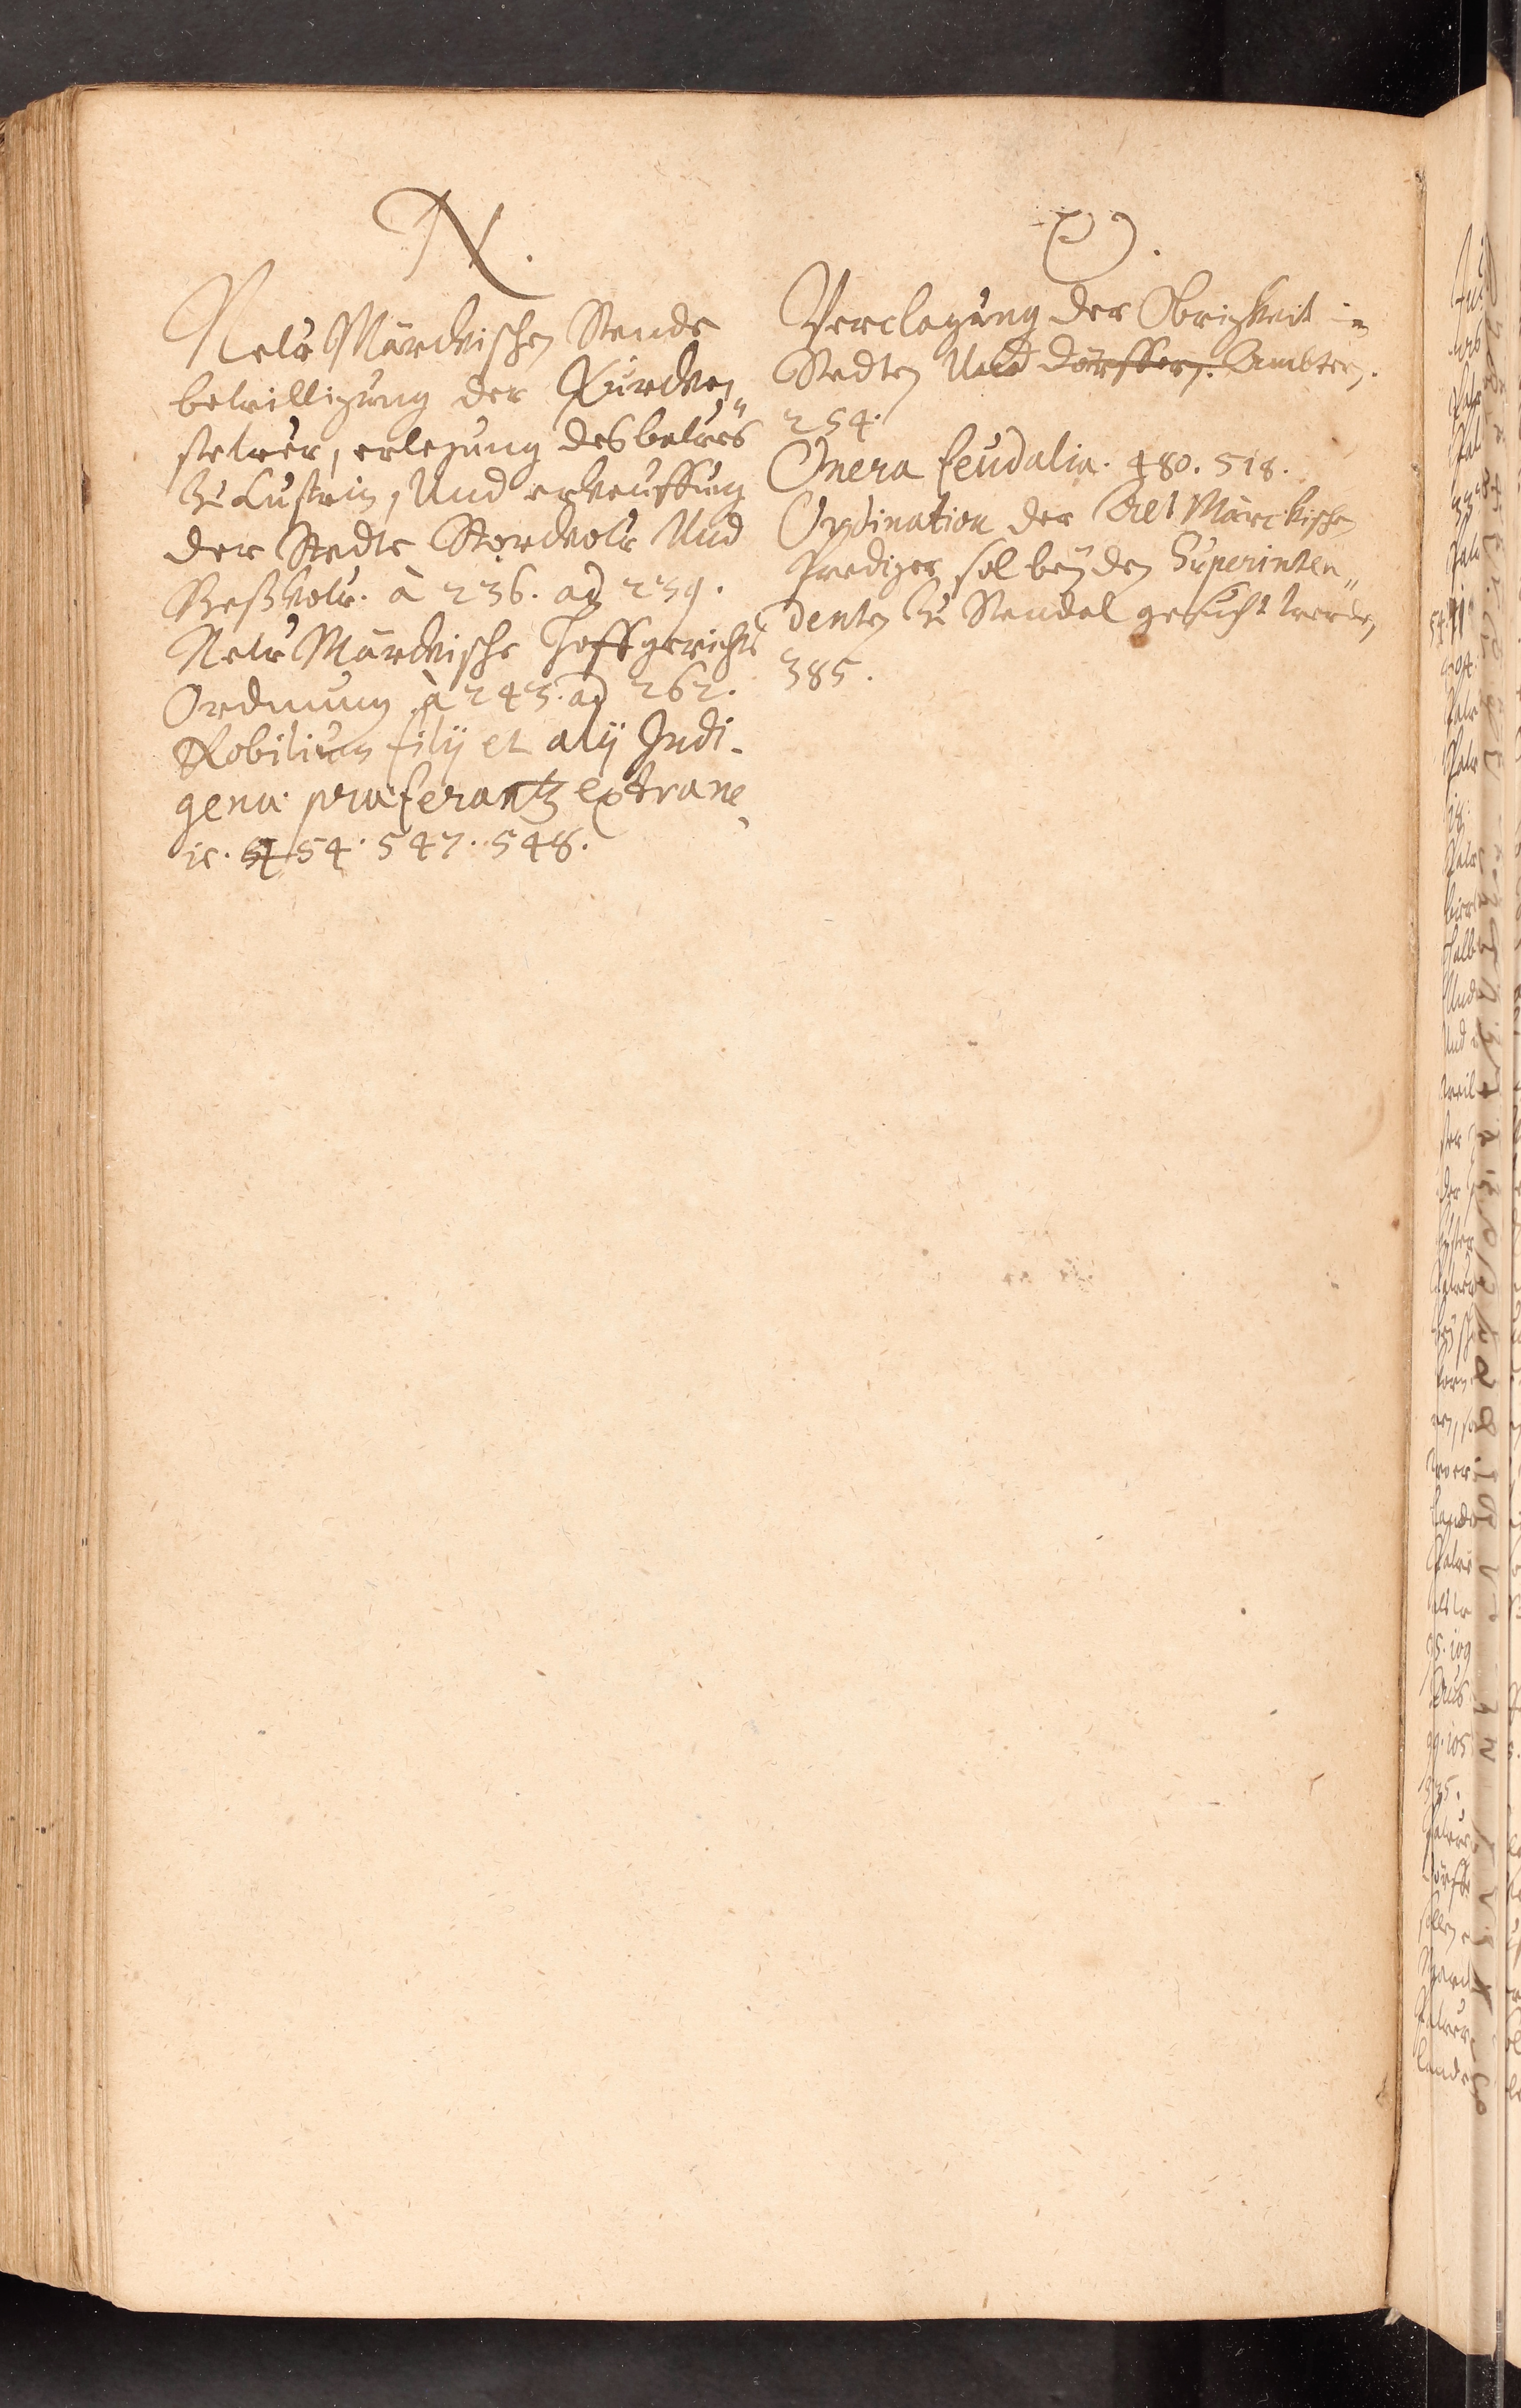 N.
New Märckischen Stende
bewilligung der Türcken„
stewer, erlegung des bawes
zu Custrin, Und erkeuffung
der Stedte Storckow Und
Beßkow. à 236. ad 239.
New Märckische Hoffgerichts
Ordnung à 243. ad 262.
Nobilium filij et alij Indi-
genæ præferantur extrane
is. 454. 547. 548.
O.
Verclagung der Obrigkeit in
Stedten Und dörffern. Ambtern.
254.
Onera feudalia. 480. 518.
Ordination der Alt Märckischen
Prediger sol bey den Superinten„
denten zu Stendal gesucht werden
385.